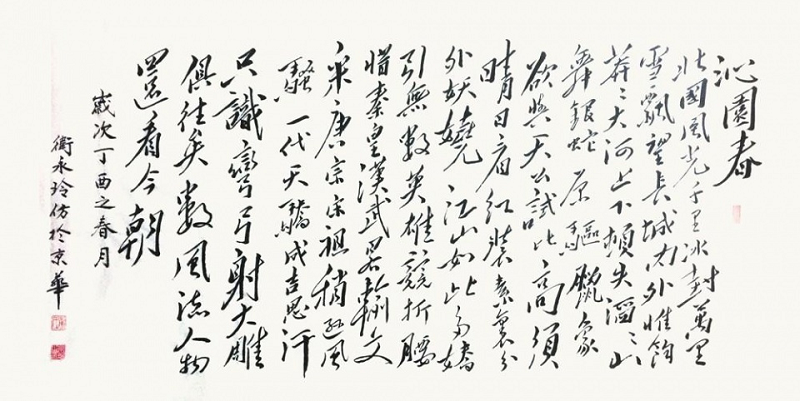 沁園春
北國風光千里冰封萬里
雪飄望長城內外惟餘
莽々大河上下頓失滔々山
舞銀蛇原驅臘象
欲與天公試比高須
晴日看紅裝素裹分
外妖嬈江山如此多嬌
引無數英雄競折腰
惜秦皇漢武略輸文
采唐宗宋祖稍遜風
騷一代天驕成吉思汗
只識彎弓射大雕
俱往矣數風流人物
還看今朝
歲次丁酉之春月
衛永玲仿於京華